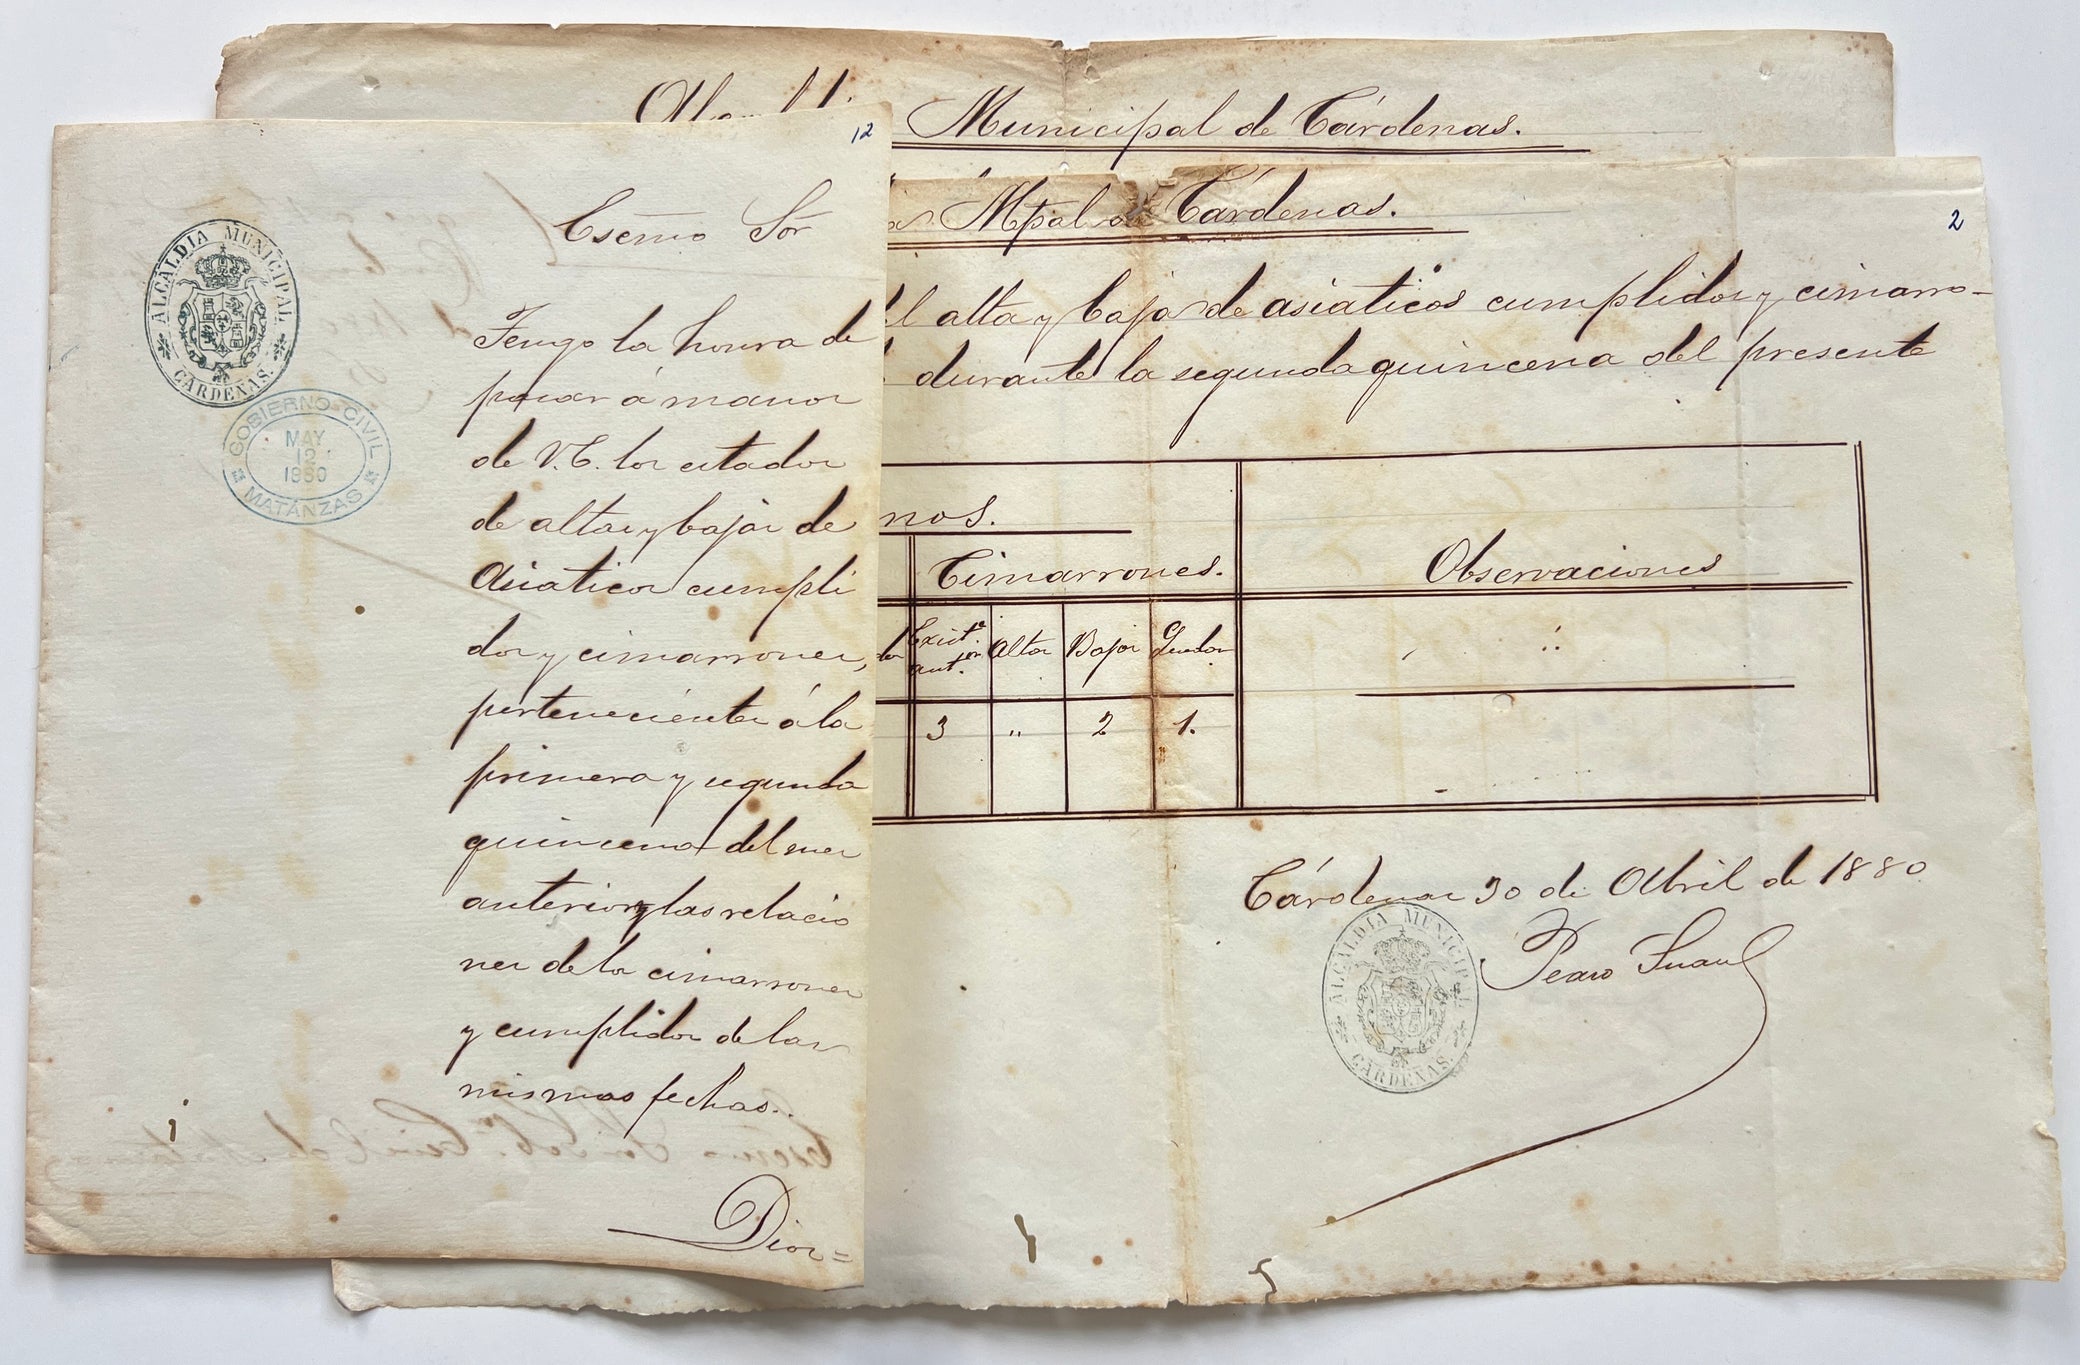 12
Escmo Sor
ALCALDIA MUNICIPAL
CARDENAS.
GOBIERNO CIVIL
MAY
12
1880
MATANZAS
Tengo la honra de
pasar á manos
de V.E. los estados
de altas y bajas de
Asiaticos cumpli
dos y cimarrones,
pertenecientes á la
primera y segunda
quincena del mes
anterior y las relacio
nes de los cimarrones
y cumplidos de las
mismas fechas.
Dios=
Municipal de Cárdenas.
Mpal de Cárdenas.
2
el alta y baja de asiaticos cumplidos y cimarro-
durante la segunda quincena del presente
nos.
Cimarrones.
Observaciones
Exist.ª ant.or
Altas
Bajas
Quedan
3
"
2
1.
Cárdenas 30 de Abril de 1880
ALCALDIA MUNICIPAL
CARDENAS.
Pedro